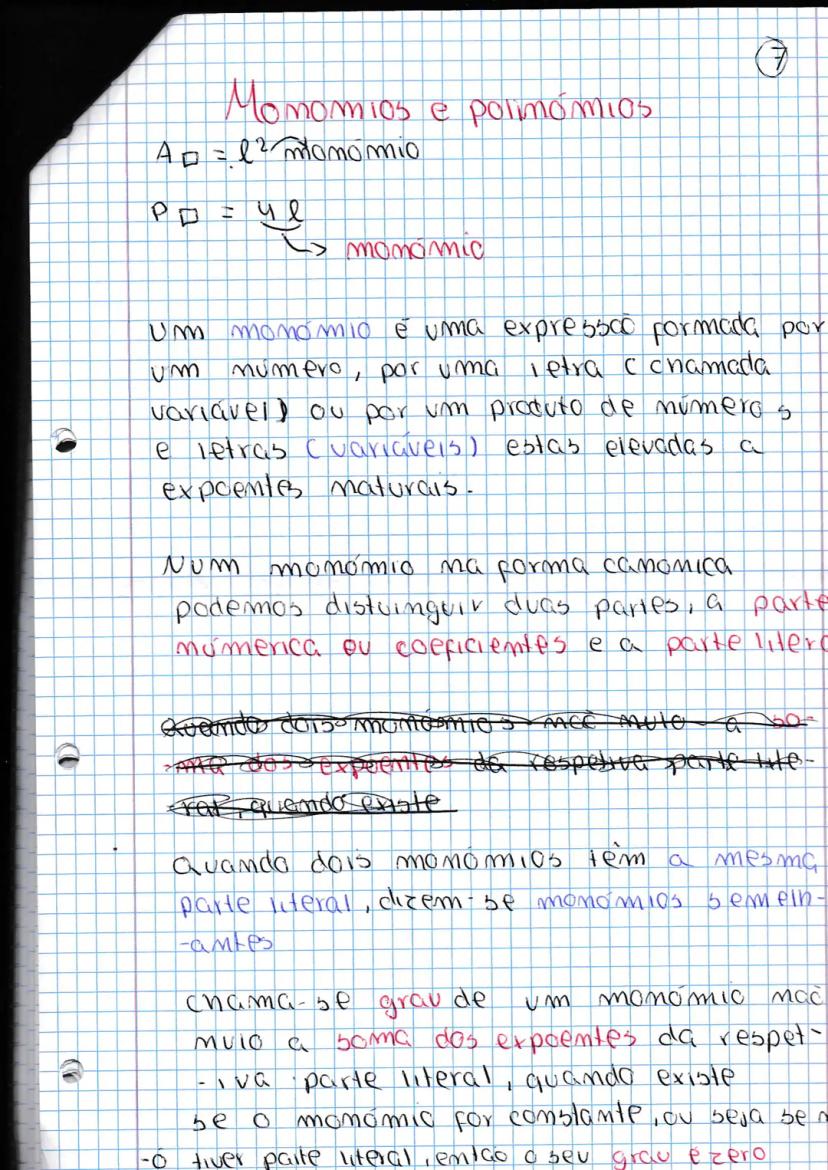 7
Monomios e polinómios
A□ = l² monómio
P□ = 4l
→ monómio
Um monómio é uma expressão formada por
um número, por uma letra (chamada
variável) ou por um produto de números
e letras (variáveis) estas elevadas a
expoentes naturais.
Num monómio na forma canonica
podemos distuinguir duas partes, a parte
númerica ou coeficientes e a parte litera
Quando dois monómios não nulo a so-
-ma dos expoentes da respetiva parte lite-
-ral, quando existe
Quando dois monómios têm a mesma
parte literal, dizem-se monómios semelh-
-antes
chama-se grau de um monómio não
nulo a soma dos expoentes da respet-
-iva parte literal, quando existe
se o monómio for constante, ou seja se n
-ó tiver parte literal, então o seu grau é zero